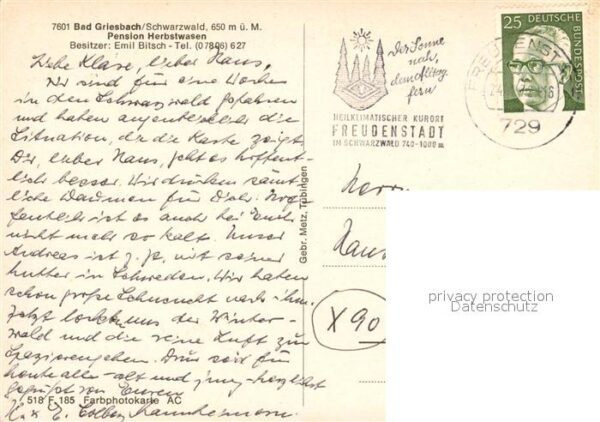 7601 Bad Griesbach/Schwarzwald, 650 m ü. M.
Pension Herbstwasen
Besitzer: Emil Bitsch - Tel. (07806) 627
lieber Hans,
Wir sind für eine Woche
in den Schwarzwald gefahren
und haben augenblicklich die
Situation, die die Karte zeigt.
Dir, lieber Hans, geht es hoffent-
lich besser. Wir drücken sämt-
liche Daumen für Dich. Hof-
fentlich ist es auch bei Euch
nicht mehr so kalt. Unser
Andreas ist z. Z. mit seiner
Mutter in Schweden. Wir haben
schon große Sehnsucht nach ihm.
Jetzt lockt uns der Winter-
wald und die reine Luft zum
Spazierengehen. Drum seid für
heute alle - alt und jung - herzlichst
gegrüßt von Euren
518 F 185 Farbphotokarte AC
Gebr. Metz, Tübingen
Der Sonne
nah,
dem Alltag
fern
HEILKLIMATISCHER KURORT
FREUDENSTADT
IM SCHWARZWALD 740-1000 m
FREUDENSTADT
729
25 DEUTSCHE
BUNDESPOST
Herrn
Hans
X 90
privacy protection
Datenschutz